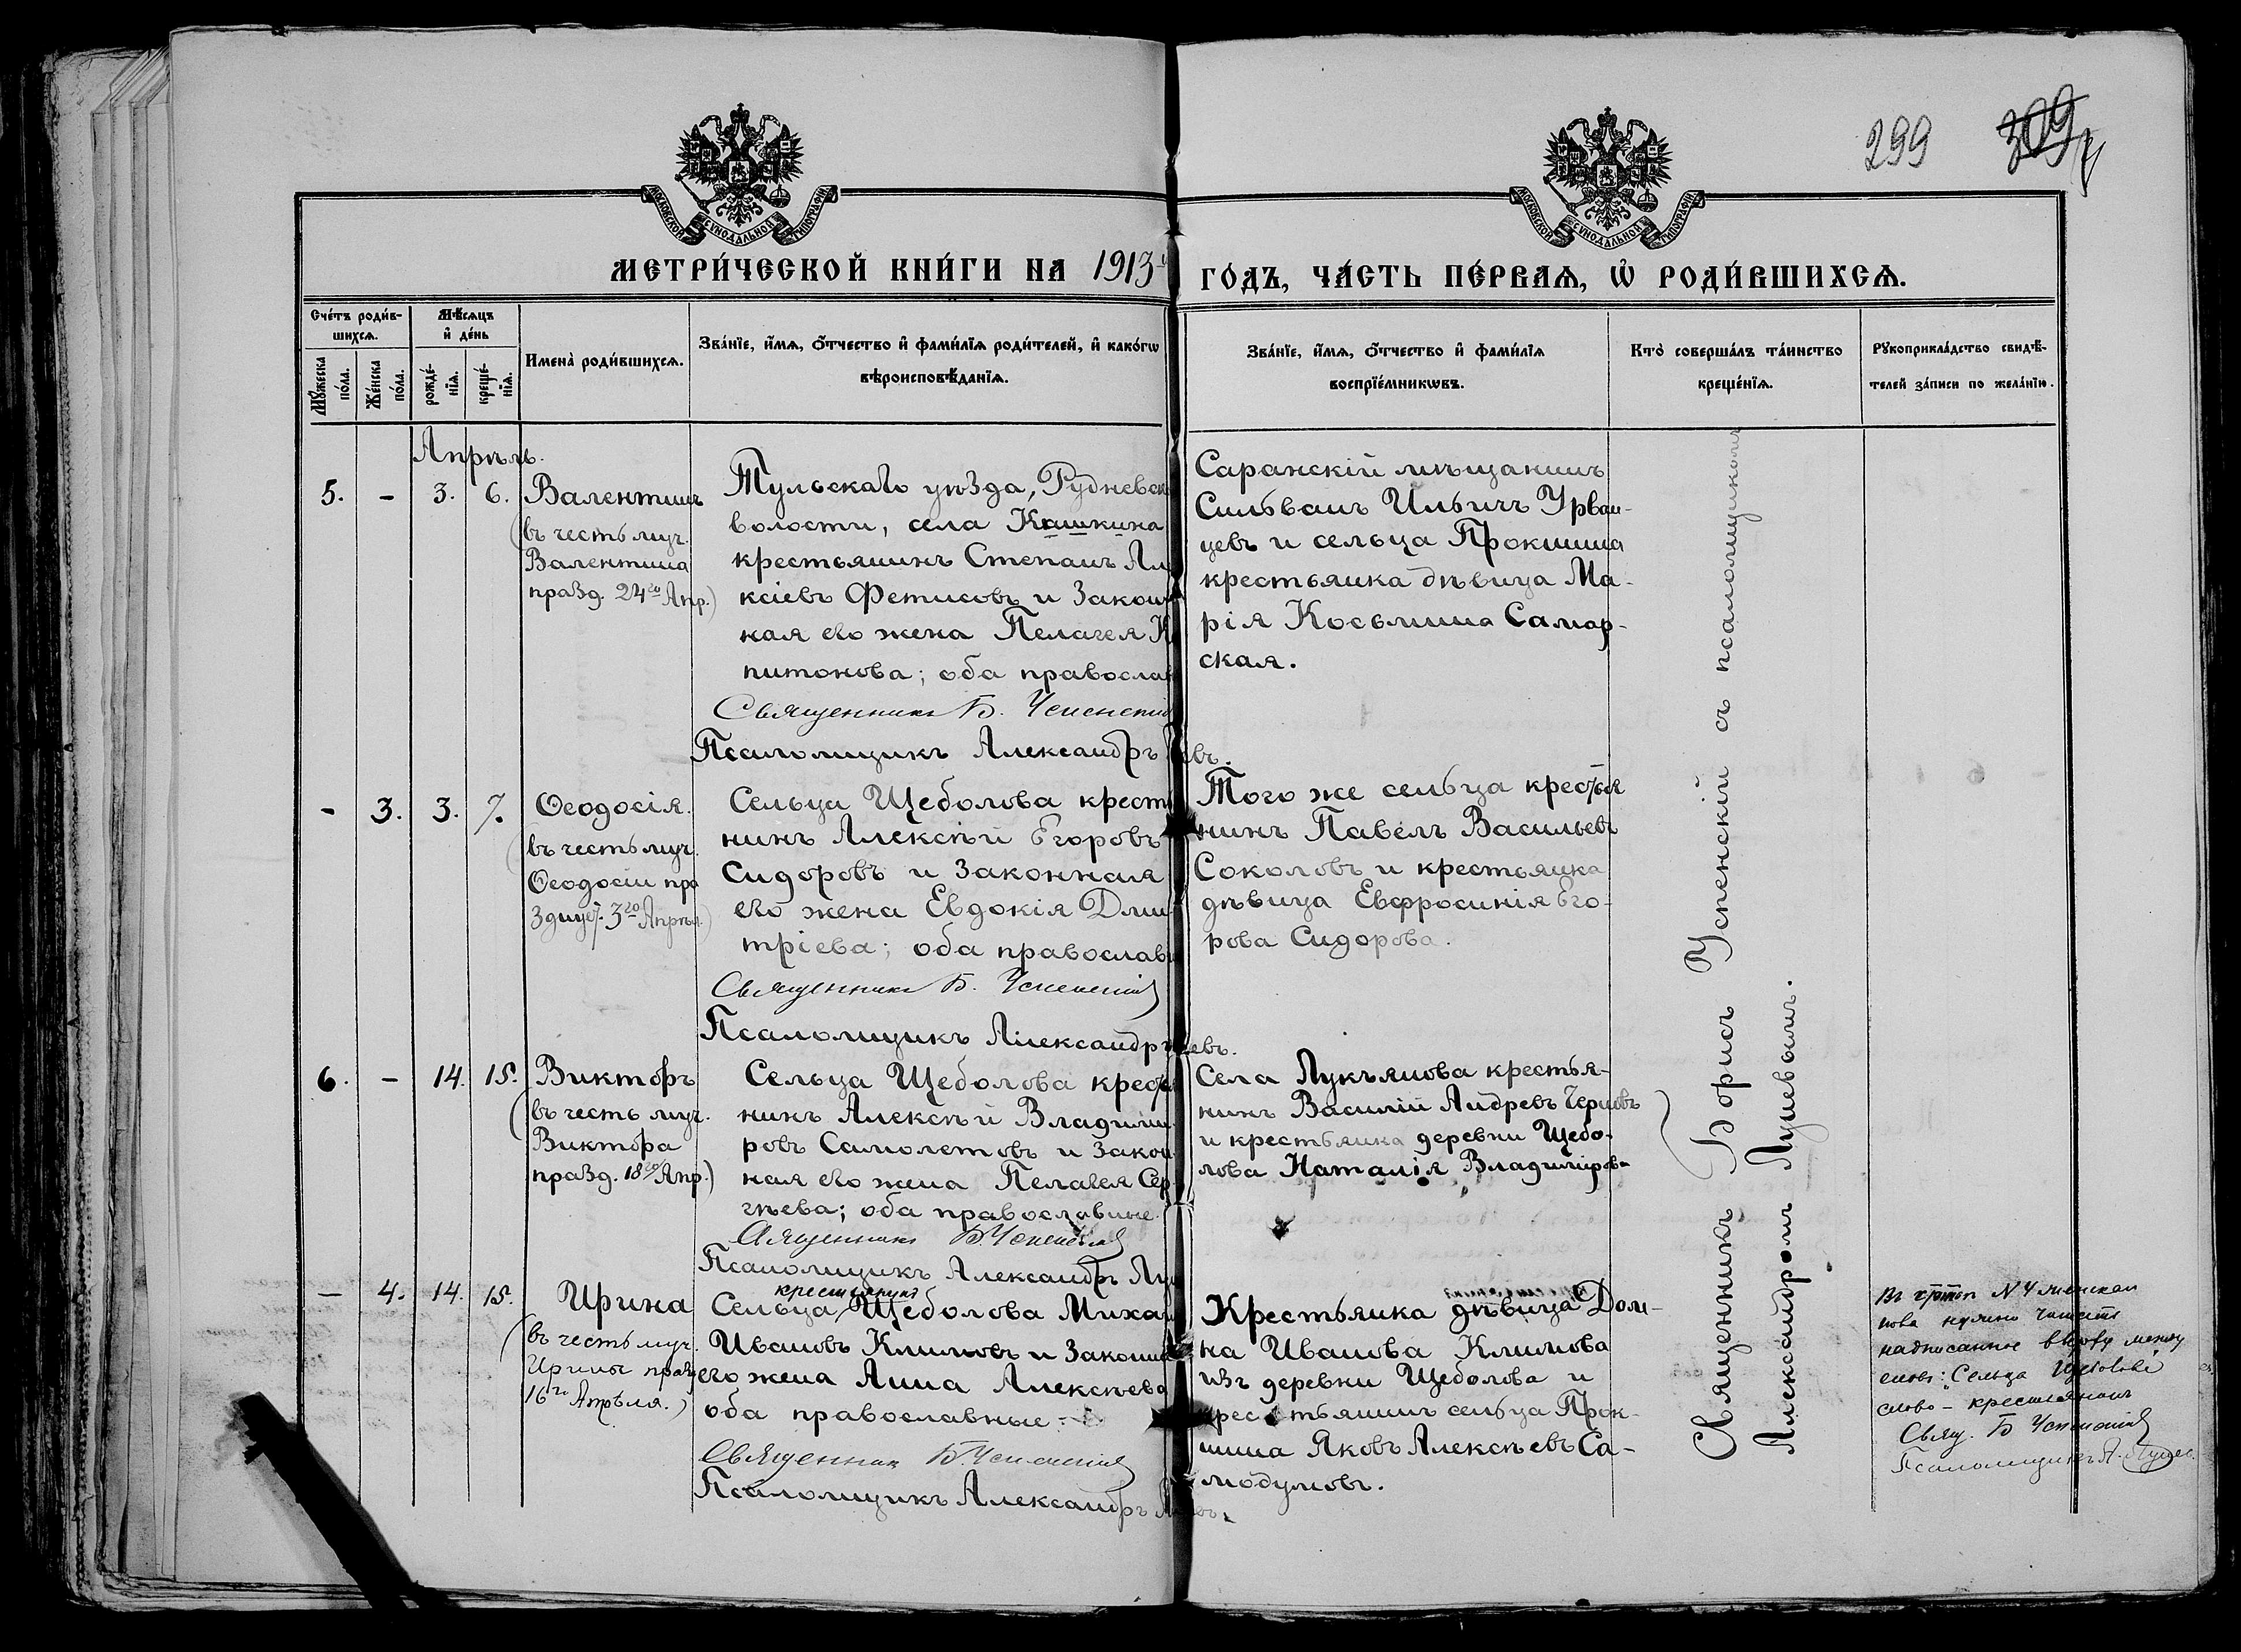 299 309
МОСКОВСКОЙ СѴНОДАЛЬНОЙ ТИПОГРАФІИ
МОСКОВСКОЙ СѴНОДАЛЬНОЙ ТИПОГРАФІИ
МЕТРИ́ЧЕСКОЙ КНИ́ГИ НА 1913-й
ГО́ДЪ, ЧА́СТЬ ПЕ́РВАѦ, Ѡ҆ РОДИ́ВШИХСѦ.
Сче́тъ роди́в-
шихсѧ.
Мѣ́сѧцъ
и҆ де́нь
Мꙋ́жеска
по́ла.
Же́нска
по́ла.
рожде́-
нїѧ.
креще́-
нїѧ.
Имена̀ роди́вшихсѧ.
Зва́нїе, и҆́мѧ, ѻ҆́тчество и҆ фами́лїѧ роди́телей, и҆ како́гѡ
вѣроисповѣ́данїѧ.
Зва́нїе, и҆́мѧ, ѻ҆́тчество и҆ фами́лїѧ
воспрїе́мникѡвъ.
Кто̀ соверша́лъ та́инство
креще́нїѧ.
Рꙋкоприкла́дство свидѣ́-
телей за́писи по жела́нїю.
Апрѣль.
5. - 3. 6.
Валентинъ
(въ честь муч.
Валентина
празд. 24го Апр.)
Тульскаго уѣзда, Рудневск
волости, села Кашкина
крестьянинъ Степанъ Ал
ксіевъ Фетисовъ и закон
ная его жена Пелагея К
питонова; оба православ
Священникъ Б. Успенскій
Псаломщикъ Александръ евъ.
Саранскій мѣщанинъ
Сильванъ Ильичъ Урван-
цевъ и сельца Прокшина
крестьянка дѣвица Ма-
рія Косьмина Самар-
ская.
- 3. 3. 7.
Ѳеодосія.
(въ честь муч.
Ѳеодосіи пра
здную. 3го Апрѣля)
Сельца Щеболова крест
нинъ Алексѣй Егоровъ
Сидоровъ и законная
его жена Евдокія Дми-
тріева; оба православ
Священникъ Б. Успенскій
Псаломщикъ Александръ евъ.
Того же сельца крестья
нинъ Павелъ Васильевъ
Соколовъ и крестьянка
дѣвица Евфросинія Его-
рова Сидорова.
6. - 14. 15.
Викторъ
(въ честь муч.
Виктора
празд. 18го Апр.)
Сельца Щеболова крестья
нинъ Алексѣй Владимі-
ровъ Самолетовъ и закон
ная его жена Пелагея Сер-
гѣева; оба православные.
Священникъ Б. Успенскій
Псаломщикъ Александръ Лу
Села Лукьянова крестья-
нинъ Василій Андревъ Черновъ
и крестьянка деревни Щебо-
лова Наталія Владимірова
- 4. 14. 15.
Ирина
(въ честь муч.
Ирины празд
16го Апрѣля.)
крестьянинъ
Сельца Щеболова Михаи
Ивановъ Климовъ и закон
его жена Анна Алексѣева
оба православные.
Священникъ Б. Успенскій
Псаломщикъ Александръ
Крестьянка дѣвица Дом-
на Иванова Климова
изъ деревни Щеболова и
крестьянинъ сельца Прок-
шина Яковъ Алексѣевъ Са-
модумовъ.
Священникъ Борисъ Успенскій съ псаломщикомъ
Александромъ Лушевымъ.
Въ № 4 женскаго
пола нужно читать
надписанное вверху между
словъ: Сельца Щеболова
слово - крестьянинъ
Свящ. Б Успенскій
Псаломщикъ А. Лушев.